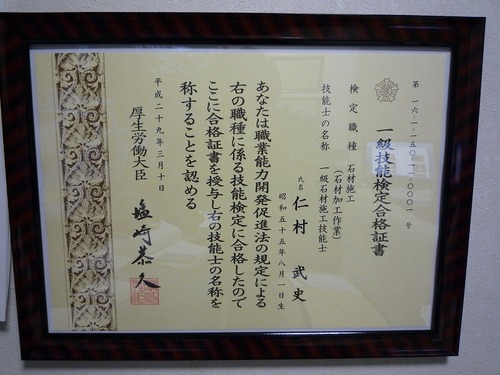 第 一六-一-一五〇-一一-〇〇〇一 号
一級技能検定合格証書
検定職種 石材施工
(石材加工作業)
技能士の名称 一級石材施工技能士
氏名 仁村 武史
昭和五十五年八月一日生
あなたは職業能力開発促進法の規定による
右の職種に係る技能検定に合格したので
ここに合格証書を授与し右の技能士の名称を
称することを認める
平成二十九年三月十日
厚生労働大臣 塩崎恭久